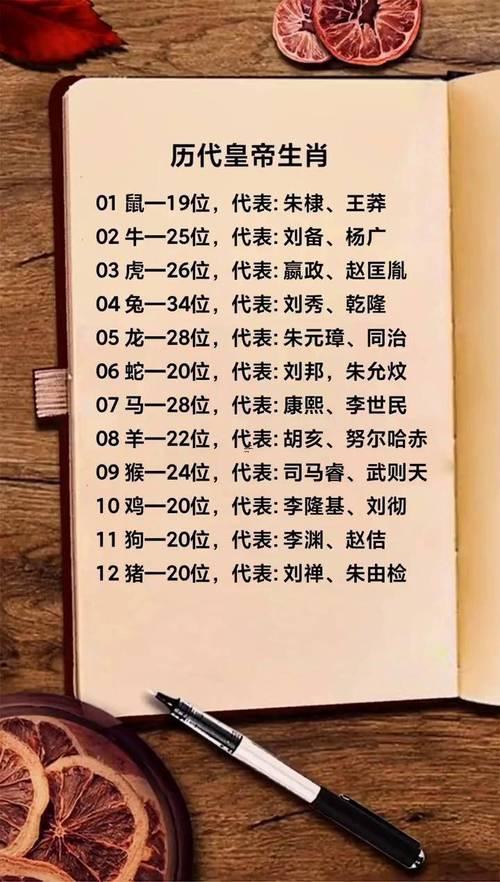 历代皇帝生肖
01 鼠—19位，代表: 朱棣、王莽
02 牛—25位，代表: 刘备、杨广
03 虎—26位，代表: 嬴政、赵匡胤
04 兔—34位，代表: 刘秀、乾隆
05 龙—28位，代表: 朱元璋、同治
06 蛇—20位，代表: 刘邦，朱允炆
07 马—28位，代表: 康熙、李世民
08 羊—22位，代表: 胡亥、努尔哈赤
09 猴—24位，代表: 司马睿、武则天
10 鸡—20位，代表: 李隆基、刘彻
11 狗—20位，代表: 李渊、赵佶
12 猪—20位，代表: 刘禅、朱由检